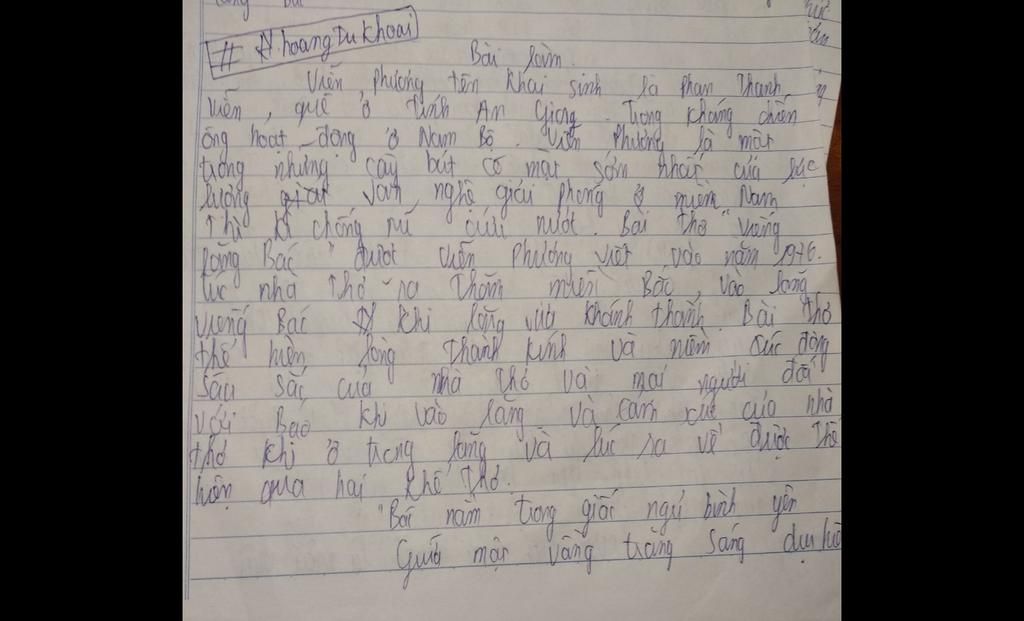 # N.hoangDukhoai
Bài làm.
Viễn phương tên khai sinh là phan Thanh
Viễn, quê ở tỉnh An Giang. Trong kháng chiến
ông hoạt động ở Nam Bộ. Viễn Phương là một
trong những cây bút có mặt sớm nhất của lực
lượng văn nghệ giải phóng ở miền Nam
Thời kì chống mĩ cứu nước. Bài thơ "Viếng
lăng Bác" được Viễn Phương viết vào năm 1976.
lúc nhà thơ ra Thăm miền Bắc, vào lăng
viếng Bác khi lăng vừa khánh thành. Bài thơ
thể hiện lòng thành kính và niềm xúc động
sâu sắc của nhà thơ và mọi người đối
với Bác khi vào lăng và cảm xúc của nhà
thơ khi ở trong lăng và lúc ra về được thể
hiện qua hai khổ thơ.
"Bác nằm trong giấc ngủ bình yên
Giữa một vầng trăng sáng dịu hiề